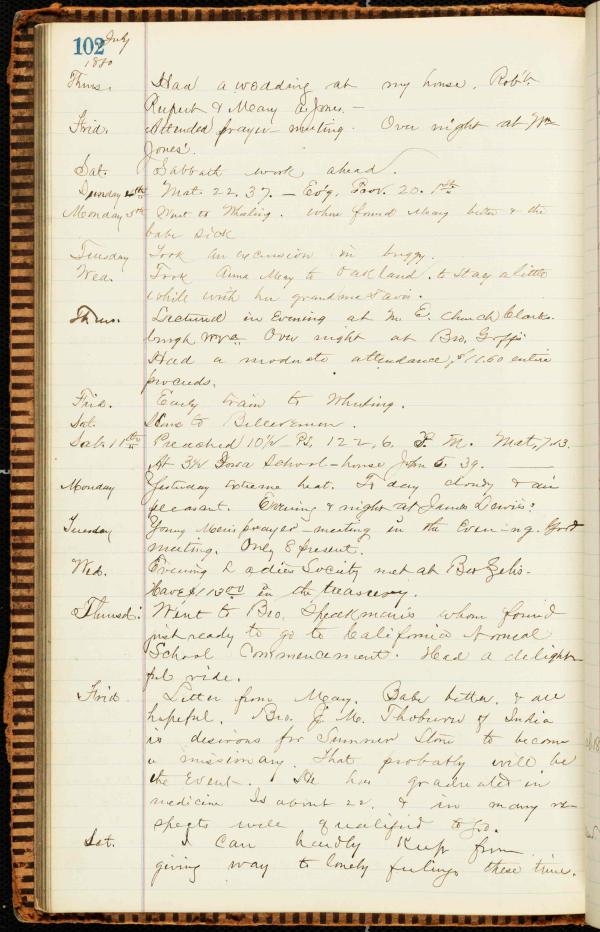 102 July
1880
Thurs. Had a wedding at my house. Robt.
Rupert & Mary A Jones. —
Frid. Attended prayer-meeting. Over night at Wm
Jones'.
Sat. Sabbath work ahead.
Sunday 4th Mat. 22, 37. — Eve, Prov. 20. 1st
Monday 5th Went to Wheeling. Where found Mary better & the
babe sick
Tuesday Took an excursion in buggy.
Wed. Took Anna Mary to Oakland. to stay a little
while with her grandma Davis.
Thurs. Lectured in Evening at M. E. Church Clarks-
burgh W Va. Over night at Bro. Goff's
Had a moderate attendance, $11.60 entire
proceeds.
Frid. Early train to Wheeling.
Sat. Home to
Sab. 11th Preached 10½ Ps. 122, 6. P. M. Mat. 7.13.
At 3½ School-house John 5. 39.
Monday Yesterday extreme heat. To day cloudy & air
pleasant. Evening & night at James Lewis'
Tuesday Young Men's prayer-meeting in the Evening. Good
meeting. Only 8 present.
Wed. Evening Ladies Society met at Bro
Have $113.00 in the treasury.
Thursd: Went to Bro. Speakman's whom found
just ready to go to California Normal
School Commencement. Had a delight-
ful ride.
Frid. Letter from Mary. Babe better, & all
hopeful. Bro. J. M. Thoburn of India
is desirous for Summer Stone to become
a missionary. That probably will be
the Event. He has graduated in
medicine Is about 22. & in many re-
spects well qualified to go.
Sat. I can hardly keep from
giving way to lonely feelings these time.